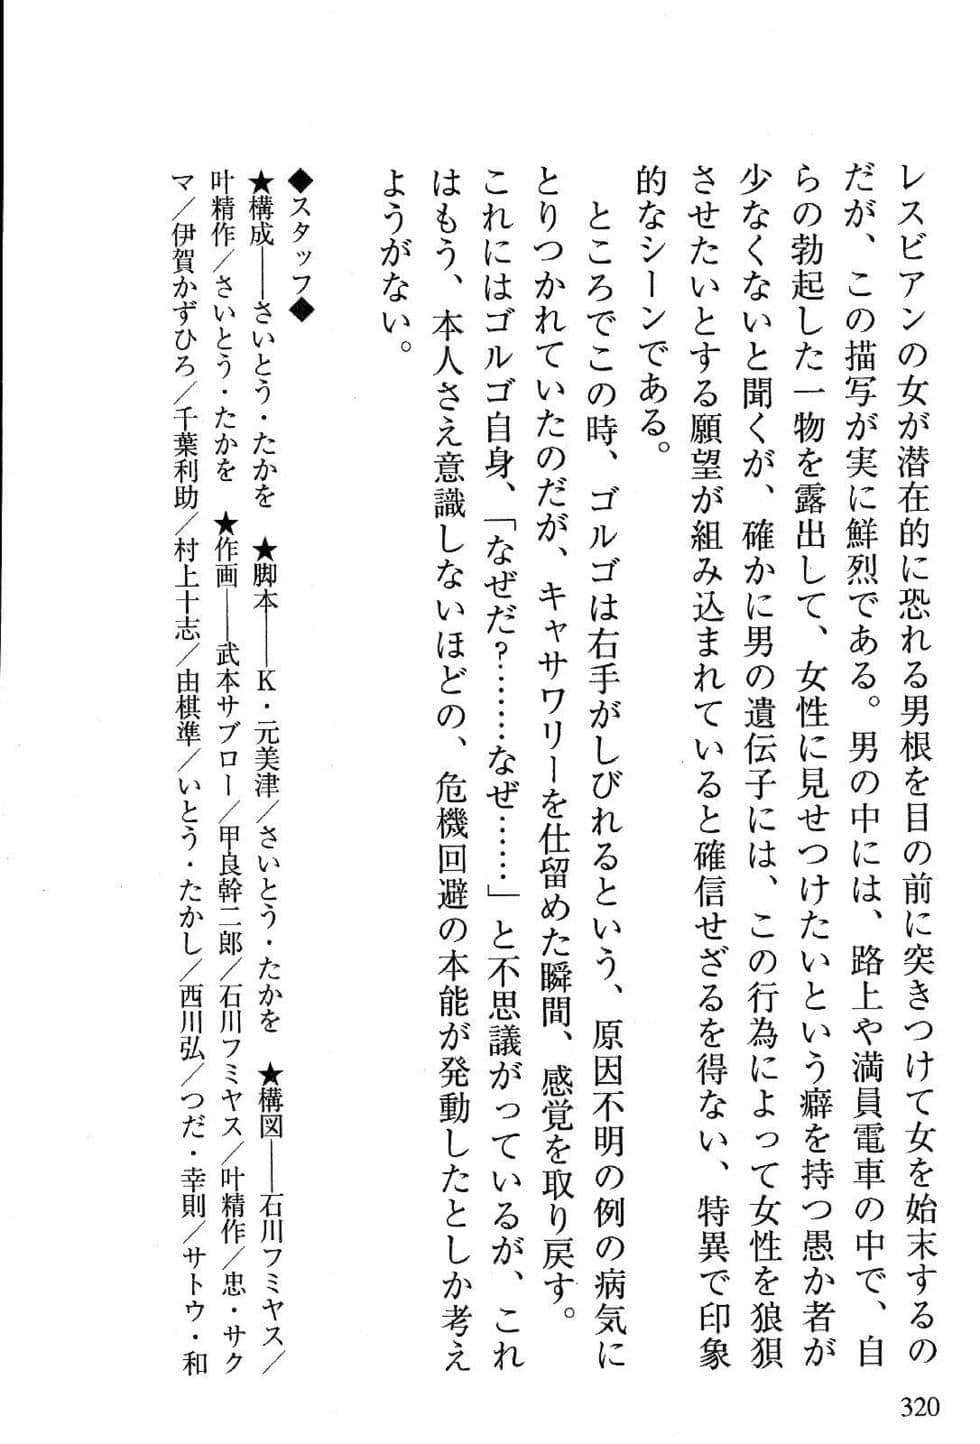 レスビアンの女が潜在的に恐れる男根を目の前に突きつけて女を始末するの
だが、この描写が実に鮮烈である。男の中には、路上や満員電車の中で、自
らの勃起した一物を露出して、女性に見せつけたいという癖を持つ愚か者が
少なくないと聞くが、確かに男の遺伝子には、この行為によって女性を狼狽
させたいとする願望が組み込まれていると確信せざるを得ない、特異で印象
的なシーンである。
ところでこの時、ゴルゴは右手がしびれるという、原因不明の例の病気に
とりつかれていたのだが、キャサワリーを仕留めた瞬間、感覚を取り戻す。
これにはゴルゴ自身、「なぜだ?………なぜ……」と不思議がっているが、これ
はもう、本人さえ意識しないほどの、危機回避の本能が発動したとしか考え
ようがない。
◆スタッフ◆
★構成――さいとう・たかを ★脚本――K・元美津/さいとう・たかを ★構図――石川フミヤス/
叶精作/さいとう・たかを ★作画――武本サブロー/甲良幹二郎/石川フミヤス/叶精作/忠・サク
マ/伊賀かずひろ/千葉利助/村上十志/由棋準/いとう・たかし/西川弘/つだ・幸則/サトウ・和
320